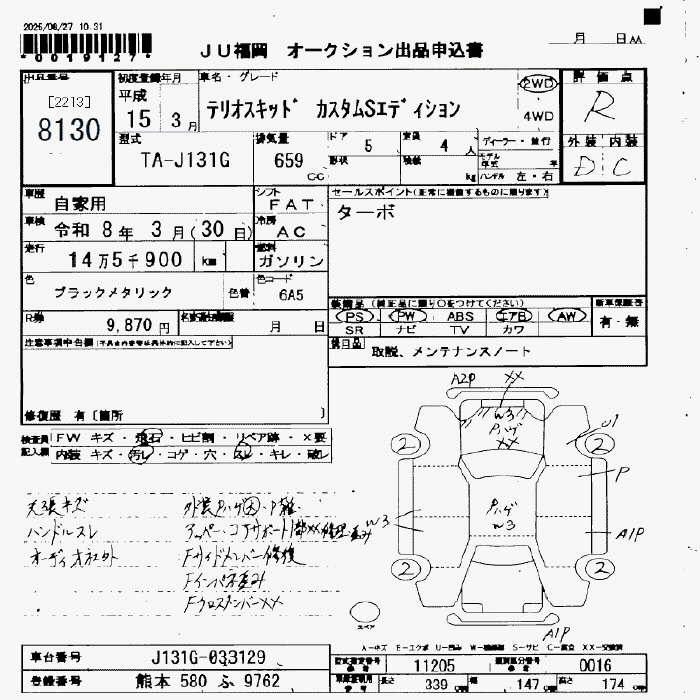 2025/06/27 10:31
*0019127*
JU福岡 オークション出品申込書
月 日 AA
出品番号
[2213]
8130
初度登録年月
平成
15 3月
車名・グレード
テリオスキッド カスタムSエディション
2WD
4WD
評価点
R
外装 内装
D C
型式
TA-J131G
排気量
659
CC
ドア
5
定員
4 人
形状
積載
kg
ディーラー・並行
モデル年式 年
ハンドル 左・右
車歴
自家用
シフト
FAT
車検
令和 8年 3月(30日)
冷房
AC
走行
14万5千900 km
燃料
ガソリン
色
ブラックメタリック
色替
色コード
6A5
R券
9,870円
月 日
セールスポイント(正常に機能するものに限ります)
ターボ
装備品 (純正品に限り○をつけてください)
PS PW ABS エアB AW
SR ナビ TV カワ
新車保証書
有・無
後日品
取説、メンテナンスノート
注意事項申告欄(不具合内容等は具体的に記入して下さい)
修復歴 有[箇所 ]
検査員記入欄
FW キズ・飛石・ヒビ割・リペア跡・×要
内装 キズ・汚レ・コゲ・穴・スレ・キレ・破レ
A2P
XX
W3
Pハゲ
XX
U1
2
2
P
Pハゲ
W3
W3
A1P
2
2
A1P
天張キズ
ハンドルスレ
Fクロスメンバーxx
スペア
A-キズ E-エクボ U-凹み W-補修跡 S-サビ C-腐食 XX-交換済
車台番号
J131G-033129
登録番号
熊本 580 ふ 9762
型式指定番号
11205
類別区分番号
0016
長さ
339
幅
147
高さ
174